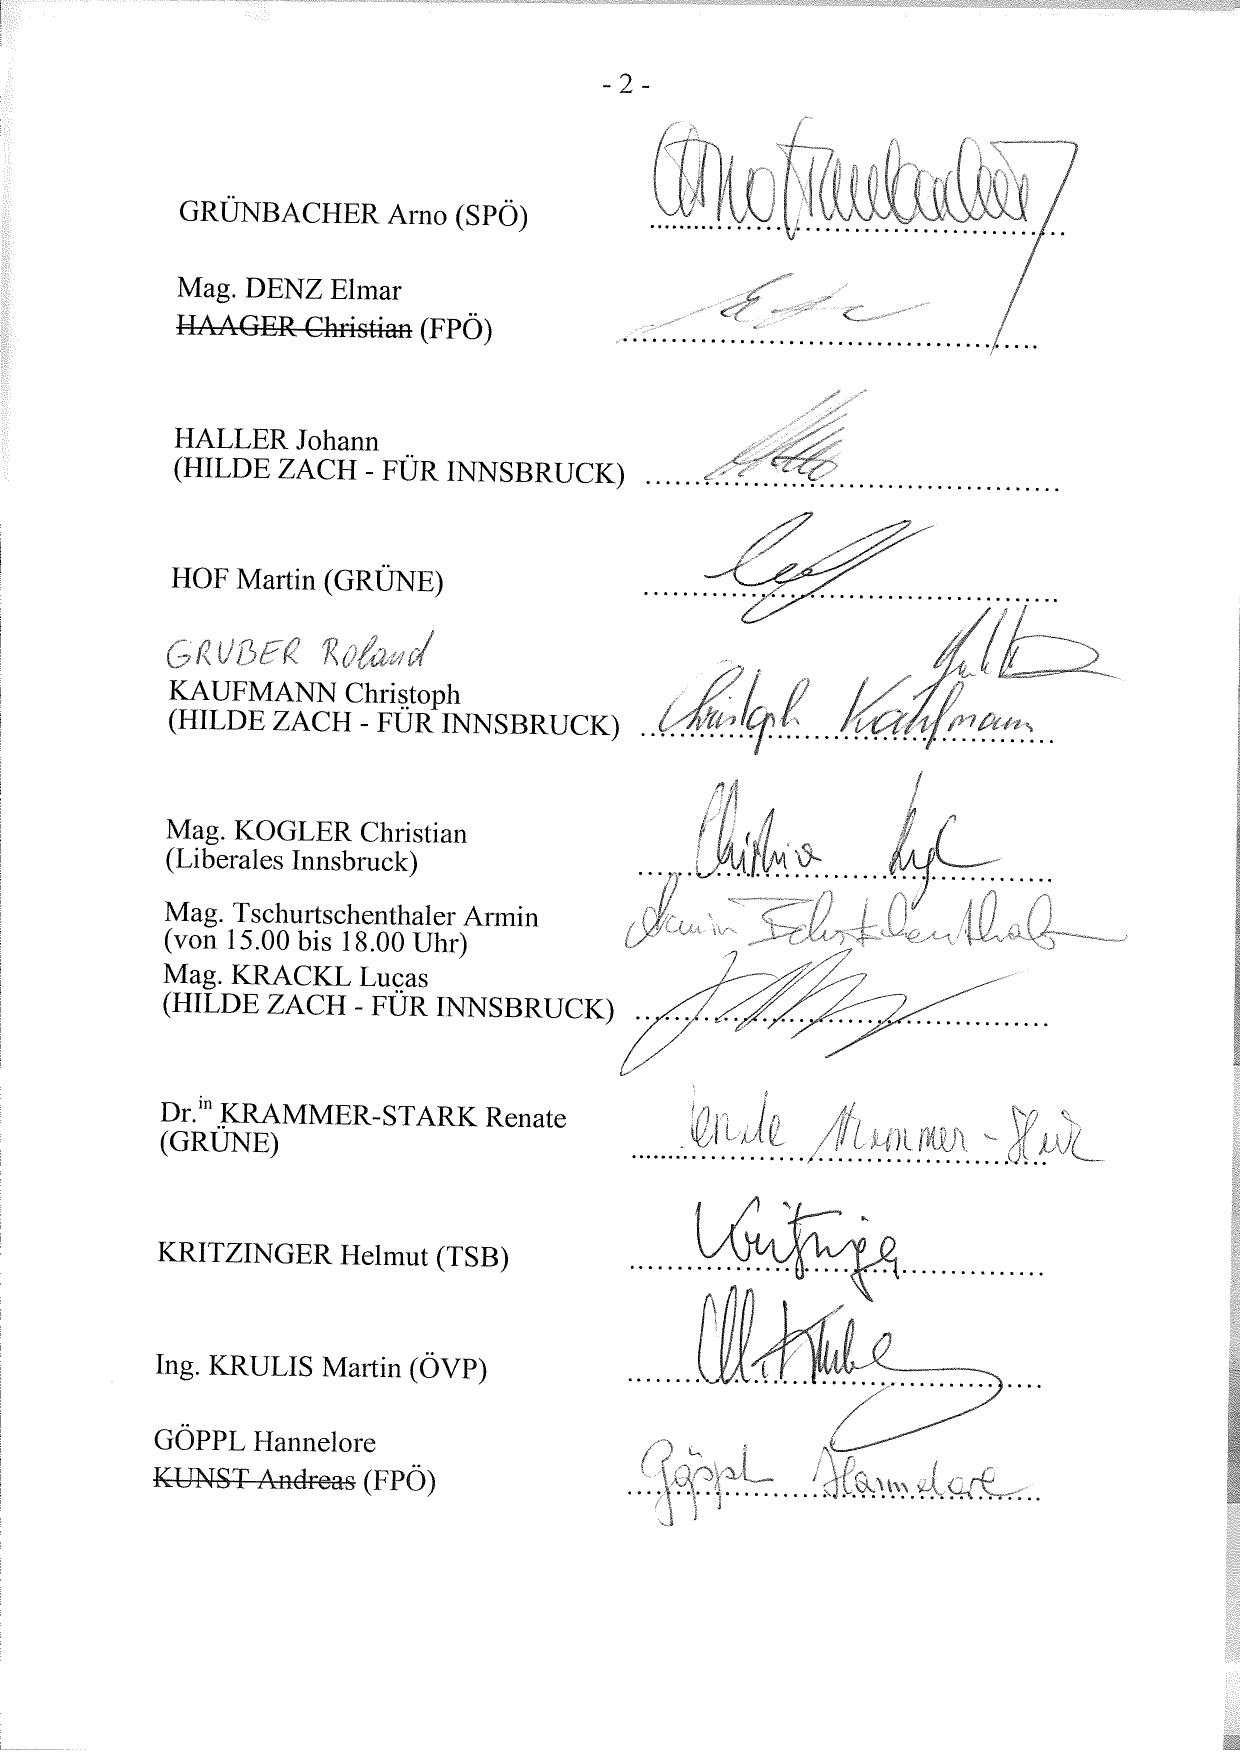 - 2 -
GRÜNBACHER Arno (SPÖ)
Mag. DENZ Elmar
HAAGER Christian (FPÖ)
HALLER Johann
(HILDE ZACH - FÜR INNSBRUCK)
HOF Martin (GRÜNE)
GRUBER Roland
KAUFMANN Christoph
(HILDE ZACH - FÜR INNSBRUCK) Christoph Kaufmann
Mag. KOGLER Christian
(Liberales Innsbruck)
Mag. Tschurtschenthaler Armin
(von 15.00 bis 18.00 Uhr)
Mag. KRACKL Lucas
(HILDE ZACH - FÜR INNSBRUCK)
Dr.in KRAMMER-STARK Renate
(GRÜNE)
KRITZINGER Helmut (TSB)
Ing. KRULIS Martin (ÖVP)
GÖPPL Hannelore
KUNST Andreas (FPÖ) Göppl Hannelore